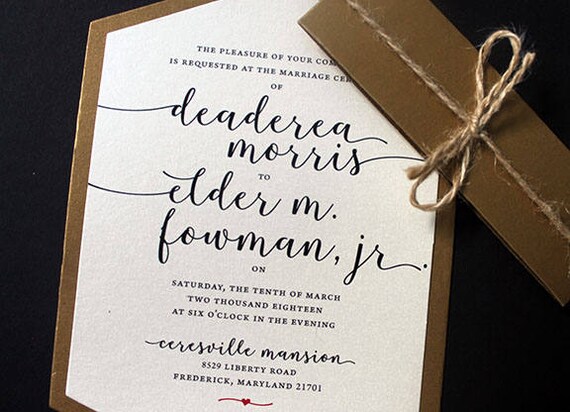 THE PLEASURE OF YOUR
IS REQUESTED AT THE MARRIAGE
OF
deaderea
morris
TO
elder m.
fowman, jr.
ON
SATURDAY, THE TENTH OF MARCH
TWO THOUSAND EIGHTEEN
AT SIX O'CLOCK IN THE EVENING
ceresville mansion
8529 LIBERTY ROAD
FREDERICK, MARYLAND 21701